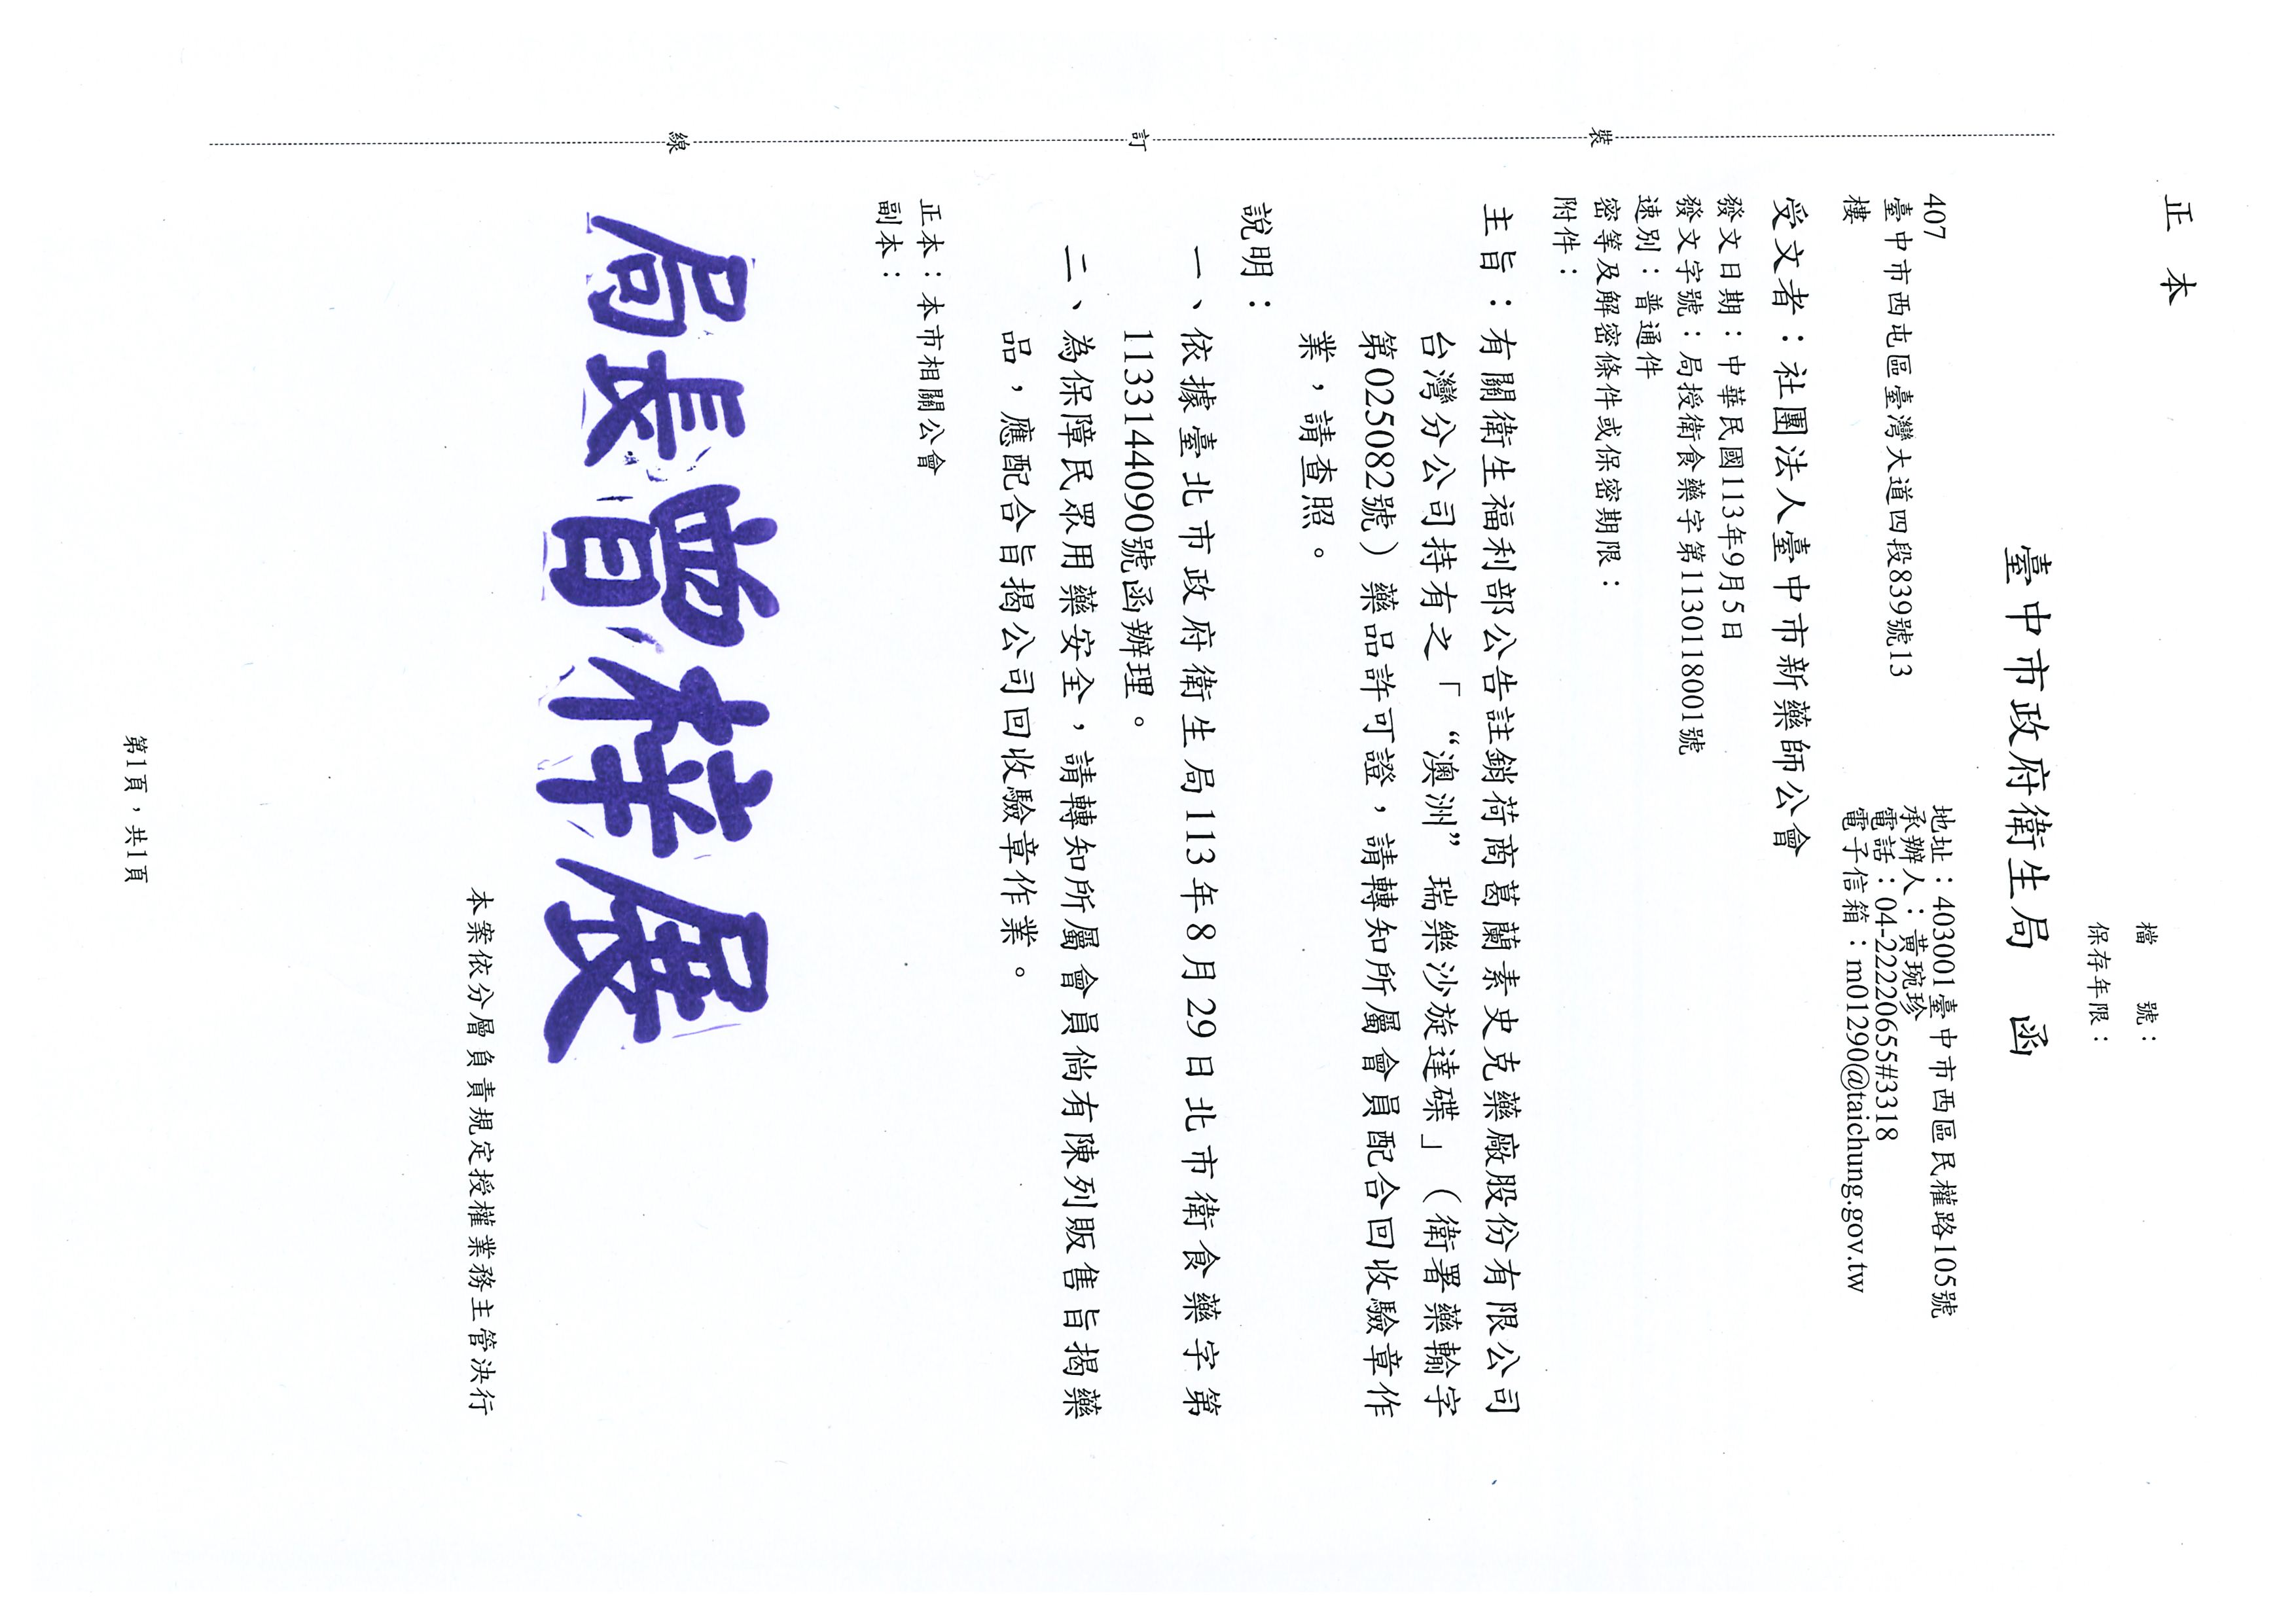 正本
檔　　號：
保存年限：
臺中市政府衛生局　函
地址：403001臺中市西區民權路105號
承辦人：黃琬珍
電話：04-22220655#3318
電子信箱：m01290@taichung.gov.tw
407
臺中市西屯區臺灣大道四段839號13
樓
受文者：社團法人臺中市新藥師公會
發文日期：中華民國113年9月5日
發文字號：局授衛食藥字第1130118001號
速別：普通件
密等及解密條件或保密期限：
附件：
主旨：有關衛生福利部公告註銷荷商葛蘭素史克藥廠股份有限公司
台灣分公司持有之「“澳洲”瑞樂沙旋達碟」（衛署藥輸字
第025082號）藥品許可證，請轉知所屬會員配合回收驗章作
業，請查照。
說明：
一、依據臺北市政府衛生局113年8月29日北市衛食藥字第
1133144090號函辦理。
二、為保障民眾用藥安全，請轉知所屬會員倘有陳列販售旨揭藥
品，應配合旨揭公司回收驗章作業。
正本：本市相關公會
副本：
局長曾梓展
本案依分層負責規定授權業務主管決行
第1頁，共1頁
裝
訂
線